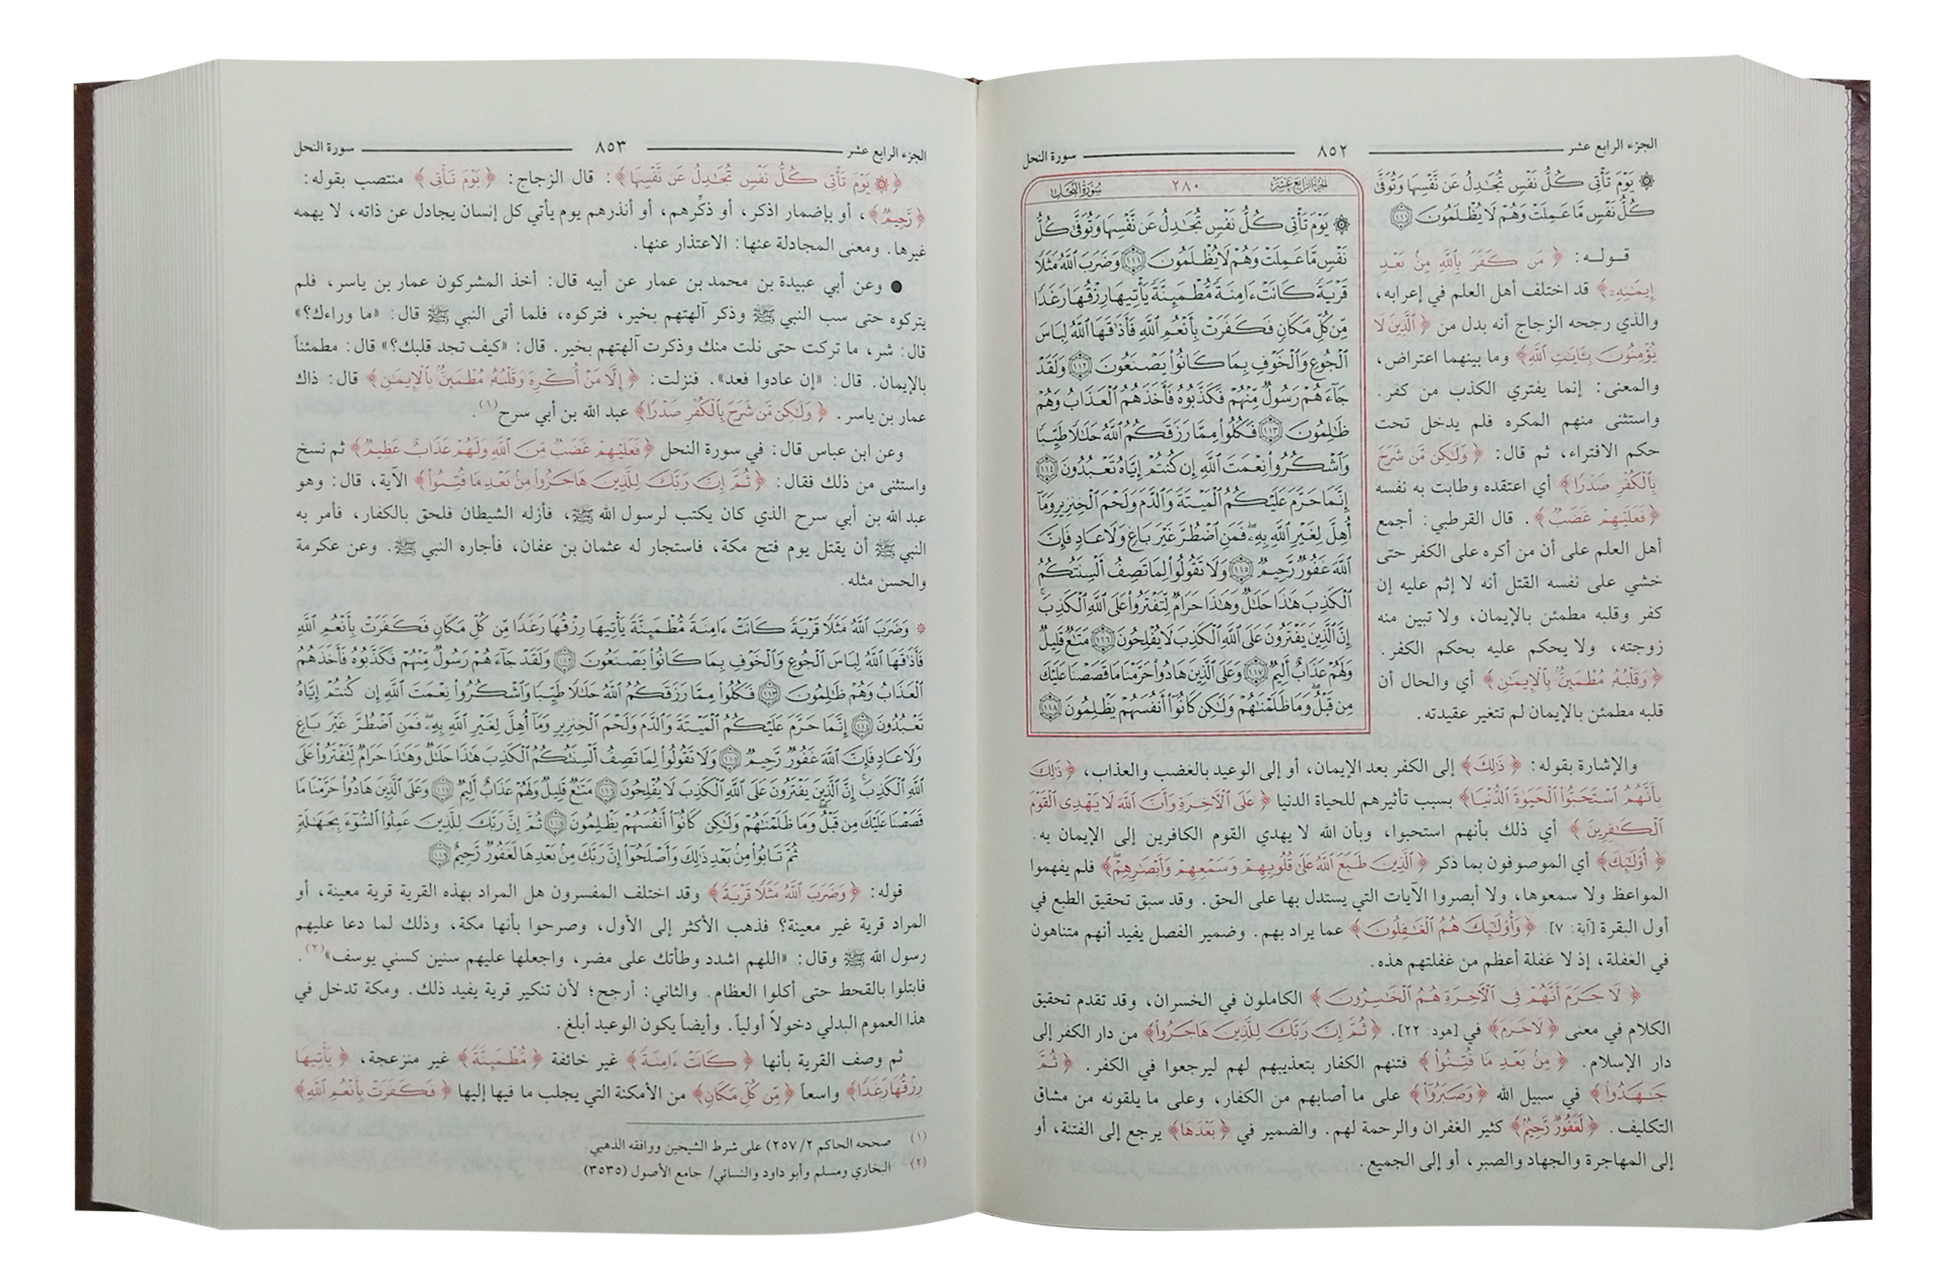 الجزء الرابع عشر ٨٥٢ سورة النحل
۞ يَوْمَ تَأْتِي كُلُّ نَفْسٍ تُجَٰدِلُ عَن نَّفْسِهَا وَتُوَفَّىٰ
كُلُّ نَفْسٍ مَّا عَمِلَتْ وَهُمْ لَا يُظْلَمُونَ ١١١
قـولـه: ﴿مَن كَفَرَ بِٱللَّهِ مِنۢ بَعْدِ
إِيمَٰنِهِۦ﴾ قد اختلف أهل العلم في إعرابه،
والذي رجحه الزجاج أنه بدل من ﴿ٱلَّذِينَ لَا
يُؤْمِنُونَ بِـَٔايَٰتِ ٱللَّهِ﴾ وما بينهما اعتراض،
والمعنى: إنما يفتري الكذب من كفر.
واستثنى منهم المكره فلم يدخل تحت
حكم الافتراء، ثم قال: ﴿وَلَٰكِن مَّن شَرَحَ
بِٱلْكُفْرِ صَدْرًا﴾ أي اعتقده وطابت به نفسه
﴿فَعَلَيْهِمْ غَضَبٌ﴾. قال القرطبي: أجمع
أهل العلم على أن من أكره على الكفر حتى
خشي على نفسه القتل أنه لا إثم عليه إن
كفر وقلبه مطمئن بالإيمان، ولا تبين منه
زوجته، ولا يحكم عليه بحكم الكفر.
﴿وَقَلْبُهُۥ مُطْمَئِنٌّۢ بِٱلْإِيمَٰنِ﴾ أي والحال أن
قلبه مطمئن بالإيمان لم تتغير عقيدته.
الجزء الرابع عشر ٢٨٠ سورة النحل
۞ يَوْمَ تَأْتِي كُلُّ نَفْسٍ تُجَٰدِلُ عَن نَّفْسِهَا وَتُوَفَّىٰ كُلُّ
نَفْسٍ مَّا عَمِلَتْ وَهُمْ لَا يُظْلَمُونَ ١١١ وَضَرَبَ ٱللَّهُ مَثَلًا
قَرْيَةً كَانَتْ ءَامِنَةً مُّطْمَئِنَّةً يَأْتِيهَا رِزْقُهَا رَغَدًا
مِّن كُلِّ مَكَانٍ فَكَفَرَتْ بِأَنْعُمِ ٱللَّهِ فَأَذَٰقَهَا ٱللَّهُ لِبَاسَ
ٱلْجُوعِ وَٱلْخَوْفِ بِمَا كَانُوا۟ يَصْنَعُونَ ١١٢ وَلَقَدْ
جَآءَهُمْ رَسُولٌ مِّنْهُمْ فَكَذَّبُوهُ فَأَخَذَهُمُ ٱلْعَذَابُ وَهُمْ
ظَٰلِمُونَ ١١٣ فَكُلُوا۟ مِمَّا رَزَقَكُمُ ٱللَّهُ حَلَٰلًا طَيِّبًا
وَٱشْكُرُوا۟ نِعْمَتَ ٱللَّهِ إِن كُنتُمْ إِيَّاهُ تَعْبُدُونَ ١١٤
إِنَّمَا حَرَّمَ عَلَيْكُمُ ٱلْمَيْتَةَ وَٱلدَّمَ وَلَحْمَ ٱلْخِنزِيرِ وَمَآ
أُهِلَّ لِغَيْرِ ٱللَّهِ بِهِۦ فَمَنِ ٱضْطُرَّ غَيْرَ بَاغٍ وَلَا عَادٍ فَإِنَّ
ٱللَّهَ غَفُورٌ رَّحِيمٌ ١١٥ وَلَا تَقُولُوا۟ لِمَا تَصِفُ أَلْسِنَتُكُمُ
ٱلْكَذِبَ هَٰذَا حَلَٰلٌ وَهَٰذَا حَرَامٌ لِّتَفْتَرُوا۟ عَلَى ٱللَّهِ ٱلْكَذِبَ
إِنَّ ٱلَّذِينَ يَفْتَرُونَ عَلَى ٱللَّهِ ٱلْكَذِبَ لَا يُفْلِحُونَ ١١٦ مَتَٰعٌ قَلِيلٌ
وَلَهُمْ عَذَابٌ أَلِيمٌ ١١٧ وَعَلَى ٱلَّذِينَ هَادُوا۟ حَرَّمْنَا مَا قَصَصْنَا عَلَيْكَ
مِن قَبْلُ وَمَا ظَلَمْنَٰهُمْ وَلَٰكِن كَانُوٓا۟ أَنفُسَهُمْ يَظْلِمُونَ ١١٨
والإشارة بقوله: ﴿ذَٰلِكَ﴾ إلى الكفر بعد الإيمان، أو إلى الوعيد بالغضب والعذاب، ﴿ذَٰلِكَ
بِأَنَّهُمُ ٱسْتَحَبُّوا۟ ٱلْحَيَوٰةَ ٱلدُّنْيَا﴾ بسبب تأثيرهم للحياة الدنيا ﴿عَلَى ٱلْـَٔاخِرَةِ وَأَنَّ ٱللَّهَ لَا يَهْدِى ٱلْقَوْمَ
ٱلْكَٰفِرِينَ﴾ أي ذلك بأنهم استحبوا، وبأن الله لا يهدي القوم الكافرين إلى الإيمان به.
﴿أُو۟لَٰٓئِكَ﴾ أي الموصوفون بما ذكر ﴿ٱلَّذِينَ طَبَعَ ٱللَّهُ عَلَىٰ قُلُوبِهِمْ وَسَمْعِهِمْ وَأَبْصَٰرِهِمْ﴾ فلم يفهموا
المواعظ ولا سمعوها، ولا أبصروا الآيات التي يستدل بها على الحق. وقد سبق تحقيق الطبع في
أول البقرة [آية: ٧]. ﴿وَأُو۟لَٰٓئِكَ هُمُ ٱلْغَٰفِلُونَ﴾ عما يراد بهم. وضمير الفصل يفيد أنهم متناهون
في الغفلة، إذ لا غفلة أعظم من غفلتهم هذه.
﴿لَا جَرَمَ أَنَّهُمْ فِى ٱلْـَٔاخِرَةِ هُمُ ٱلْخَٰسِرُونَ﴾ الكاملون في الخسران، وقد تقدم تحقيق
الكلام في معنى ﴿لَاجَرَمَ﴾ في [هود: ٢٢]. ﴿ثُمَّ إِنَّ رَبَّكَ لِلَّذِينَ هَاجَرُوا۟﴾ من دار الكفر إلى
دار الإسلام. ﴿مِنۢ بَعْدِ مَا فُتِنُوا۟﴾ فتنهم الكفار بتعذيبهم لهم ليرجعوا في الكفر. ﴿ثُمَّ
جَٰهَدُوا۟﴾ في سبيل الله ﴿وَصَبَرُوٓا۟﴾ على ما أصابهم من الكفار، وعلى ما يلقونه من مشاق
التكليف. ﴿لَغَفُورٌ رَّحِيمٌ﴾ كثير الغفران والرحمة لهم. والضمير في ﴿بَعْدَهَا﴾ يرجع إلى الفتنة، أو
إلى المهاجرة والجهاد والصبر، أو إلى الجميع.
الجزء الرابع عشر ٨٥٣ سورة النحل
﴿۞ يَوْمَ تَأْتِي كُلُّ نَفْسٍ تُجَٰدِلُ عَن نَّفْسِهَا﴾: قال الزجاج: ﴿يَوْمَ تَأْتِي﴾ منتصب بقوله:
﴿رَّحِيمٌ﴾، أو بإضمار اذكر، أو ذكِّرهم، أو أنذرهم يوم يأتي كل إنسان يجادل عن ذاته، لا يهمه
غيرها. ومعنى المجادلة عنها: الاعتذار عنها.
● وعن أبي عبيدة بن محمد بن عمار عن أبيه قال: أخذ المشركون عمار بن ياسر، فلم
يتركوه حتى سب النبي ﷺ وذكر آلهتهم بخير، فتركوه، فلما أتى النبي ﷺ قال: «ما وراءك؟»
قال: شر، ما تركت حتى نلت منك وذكرت آلهتهم بخير. قال: «كيف تجد قلبك؟» قال: مطمئناً
بالإيمان. قال: «إن عادوا فعد». فنزلت: ﴿إِلَّا مَنْ أُكْرِهَ وَقَلْبُهُۥ مُطْمَئِنٌّۢ بِٱلْإِيمَٰنِ﴾ قال: ذاك
عمار بن ياسر. ﴿وَلَٰكِن مَّن شَرَحَ بِٱلْكُفْرِ صَدْرًا﴾ عبد الله بن أبي سرح(١).
وعن ابن عباس قال: في سورة النحل ﴿فَعَلَيْهِمْ غَضَبٌ مِّنَ ٱللَّهِ وَلَهُمْ عَذَابٌ عَظِيمٌ﴾ ثم نسخ
واستثنى من ذلك فقال: ﴿ثُمَّ إِنَّ رَبَّكَ لِلَّذِينَ هَاجَرُوا۟ مِنۢ بَعْدِ مَا فُتِنُوا۟﴾ الآية، قال: وهو
عبد الله بن أبي سرح الذي كان يكتب لرسول الله ﷺ، فأزله الشيطان فلحق بالكفار، فأمر به
النبي ﷺ أن يقتل يوم فتح مكة، فاستجار له عثمان بن عفان، فأجاره النبي ﷺ. وعن عكرمة
والحسن مثله.
* وَضَرَبَ ٱللَّهُ مَثَلًا قَرْيَةً كَانَتْ ءَامِنَةً مُّطْمَئِنَّةً يَأْتِيهَا رِزْقُهَا رَغَدًا مِّن كُلِّ مَكَانٍ فَكَفَرَتْ بِأَنْعُمِ ٱللَّهِ
فَأَذَٰقَهَا ٱللَّهُ لِبَاسَ ٱلْجُوعِ وَٱلْخَوْفِ بِمَا كَانُوا۟ يَصْنَعُونَ ١١٢ وَلَقَدْ جَآءَهُمْ رَسُولٌ مِّنْهُمْ فَكَذَّبُوهُ فَأَخَذَهُمُ
ٱلْعَذَابُ وَهُمْ ظَٰلِمُونَ ١١٣ فَكُلُوا۟ مِمَّا رَزَقَكُمُ ٱللَّهُ حَلَٰلًا طَيِّبًا وَٱشْكُرُوا۟ نِعْمَتَ ٱللَّهِ إِن كُنتُمْ إِيَّاهُ
تَعْبُدُونَ ١١٤ إِنَّمَا حَرَّمَ عَلَيْكُمُ ٱلْمَيْتَةَ وَٱلدَّمَ وَلَحْمَ ٱلْخِنزِيرِ وَمَآ أُهِلَّ لِغَيْرِ ٱللَّهِ بِهِۦ فَمَنِ ٱضْطُرَّ غَيْرَ بَاغٍ
وَلَا عَادٍ فَإِنَّ ٱللَّهَ غَفُورٌ رَّحِيمٌ ١١٥ وَلَا تَقُولُوا۟ لِمَا تَصِفُ أَلْسِنَتُكُمُ ٱلْكَذِبَ هَٰذَا حَلَٰلٌ وَهَٰذَا حَرَامٌ لِّتَفْتَرُوا۟ عَلَى
ٱللَّهِ ٱلْكَذِبَ إِنَّ ٱلَّذِينَ يَفْتَرُونَ عَلَى ٱللَّهِ ٱلْكَذِبَ لَا يُفْلِحُونَ ١١٦ مَتَٰعٌ قَلِيلٌ وَلَهُمْ عَذَابٌ أَلِيمٌ ١١٧ وَعَلَى ٱلَّذِينَ هَادُوا۟ حَرَّمْنَا مَا
قَصَصْنَا عَلَيْكَ مِن قَبْلُ وَمَا ظَلَمْنَٰهُمْ وَلَٰكِن كَانُوٓا۟ أَنفُسَهُمْ يَظْلِمُونَ ١١٨ ثُمَّ إِنَّ رَبَّكَ لِلَّذِينَ عَمِلُوا۟ ٱلسُّوٓءَ بِجَهَٰلَةٍ
ثُمَّ تَابُوا۟ مِنۢ بَعْدِ ذَٰلِكَ وَأَصْلَحُوٓا۟ إِنَّ رَبَّكَ مِنۢ بَعْدِهَا لَغَفُورٌ رَّحِيمٌ ١١٩
قوله: ﴿وَضَرَبَ ٱللَّهُ مَثَلًا قَرْيَةً﴾ وقد اختلف المفسرون هل المراد بهذه القرية قرية معينة، أو
المراد قرية غير معينة؟ فذهب الأكثر إلى الأول، وصرحوا بأنها مكة، وذلك لما دعا عليهم
رسول الله ﷺ وقال: «اللهم اشدد وطأتك على مضر، واجعلها عليهم سنين كسني يوسف»(٢).
فابتلوا بالقحط حتى أكلوا العظام. والثاني: أرجح؛ لأن تنكير قرية يفيد ذلك. ومكة تدخل في
هذا العموم البدلي دخولاً أولياً. وأيضاً يكون الوعيد أبلغ.
ثم وصف القرية بأنها ﴿كَانَتْ ءَامِنَةً﴾ غير خائفة ﴿مُّطْمَئِنَّةً﴾ غير منزعجة، ﴿يَأْتِيهَا
رِزْقُهَا رَغَدًا﴾ واسعاً ﴿مِّن كُلِّ مَكَانٍ﴾ من الأمكنة التي يجلب ما فيها إليها ﴿فَكَفَرَتْ بِأَنْعُمِ ٱللَّهِ﴾
(١) صححه الحاكم ٢/ ٢٥٧) على شرط الشيخين ووافقه الذهبي.
(٢) البخاري ومسلم وأبو داود والنسائي/ جامع الأصول (٣٥٣٥)